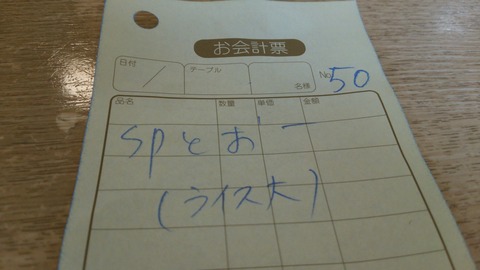 お会計票
日付 / テーブル 名様 No. 50
品名 数量 単価 金額
spとお 一
(ライス大)